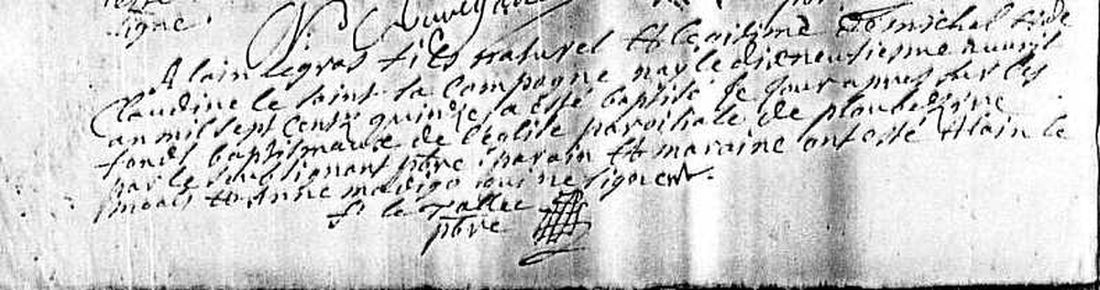 signe
Alain Legras fils naturel et legitime de michel et de
Claudine le saint sa compagne nay le dieneufiesme auvril
an mil sept cents quinze, a esté baptisé le jour apres sur les
fonds baptismaux de l'eglise paroissiale de
par le soussignant pbre parain et maraine ont esté Alain le
et Anne qui ne signent.
f le
pbre